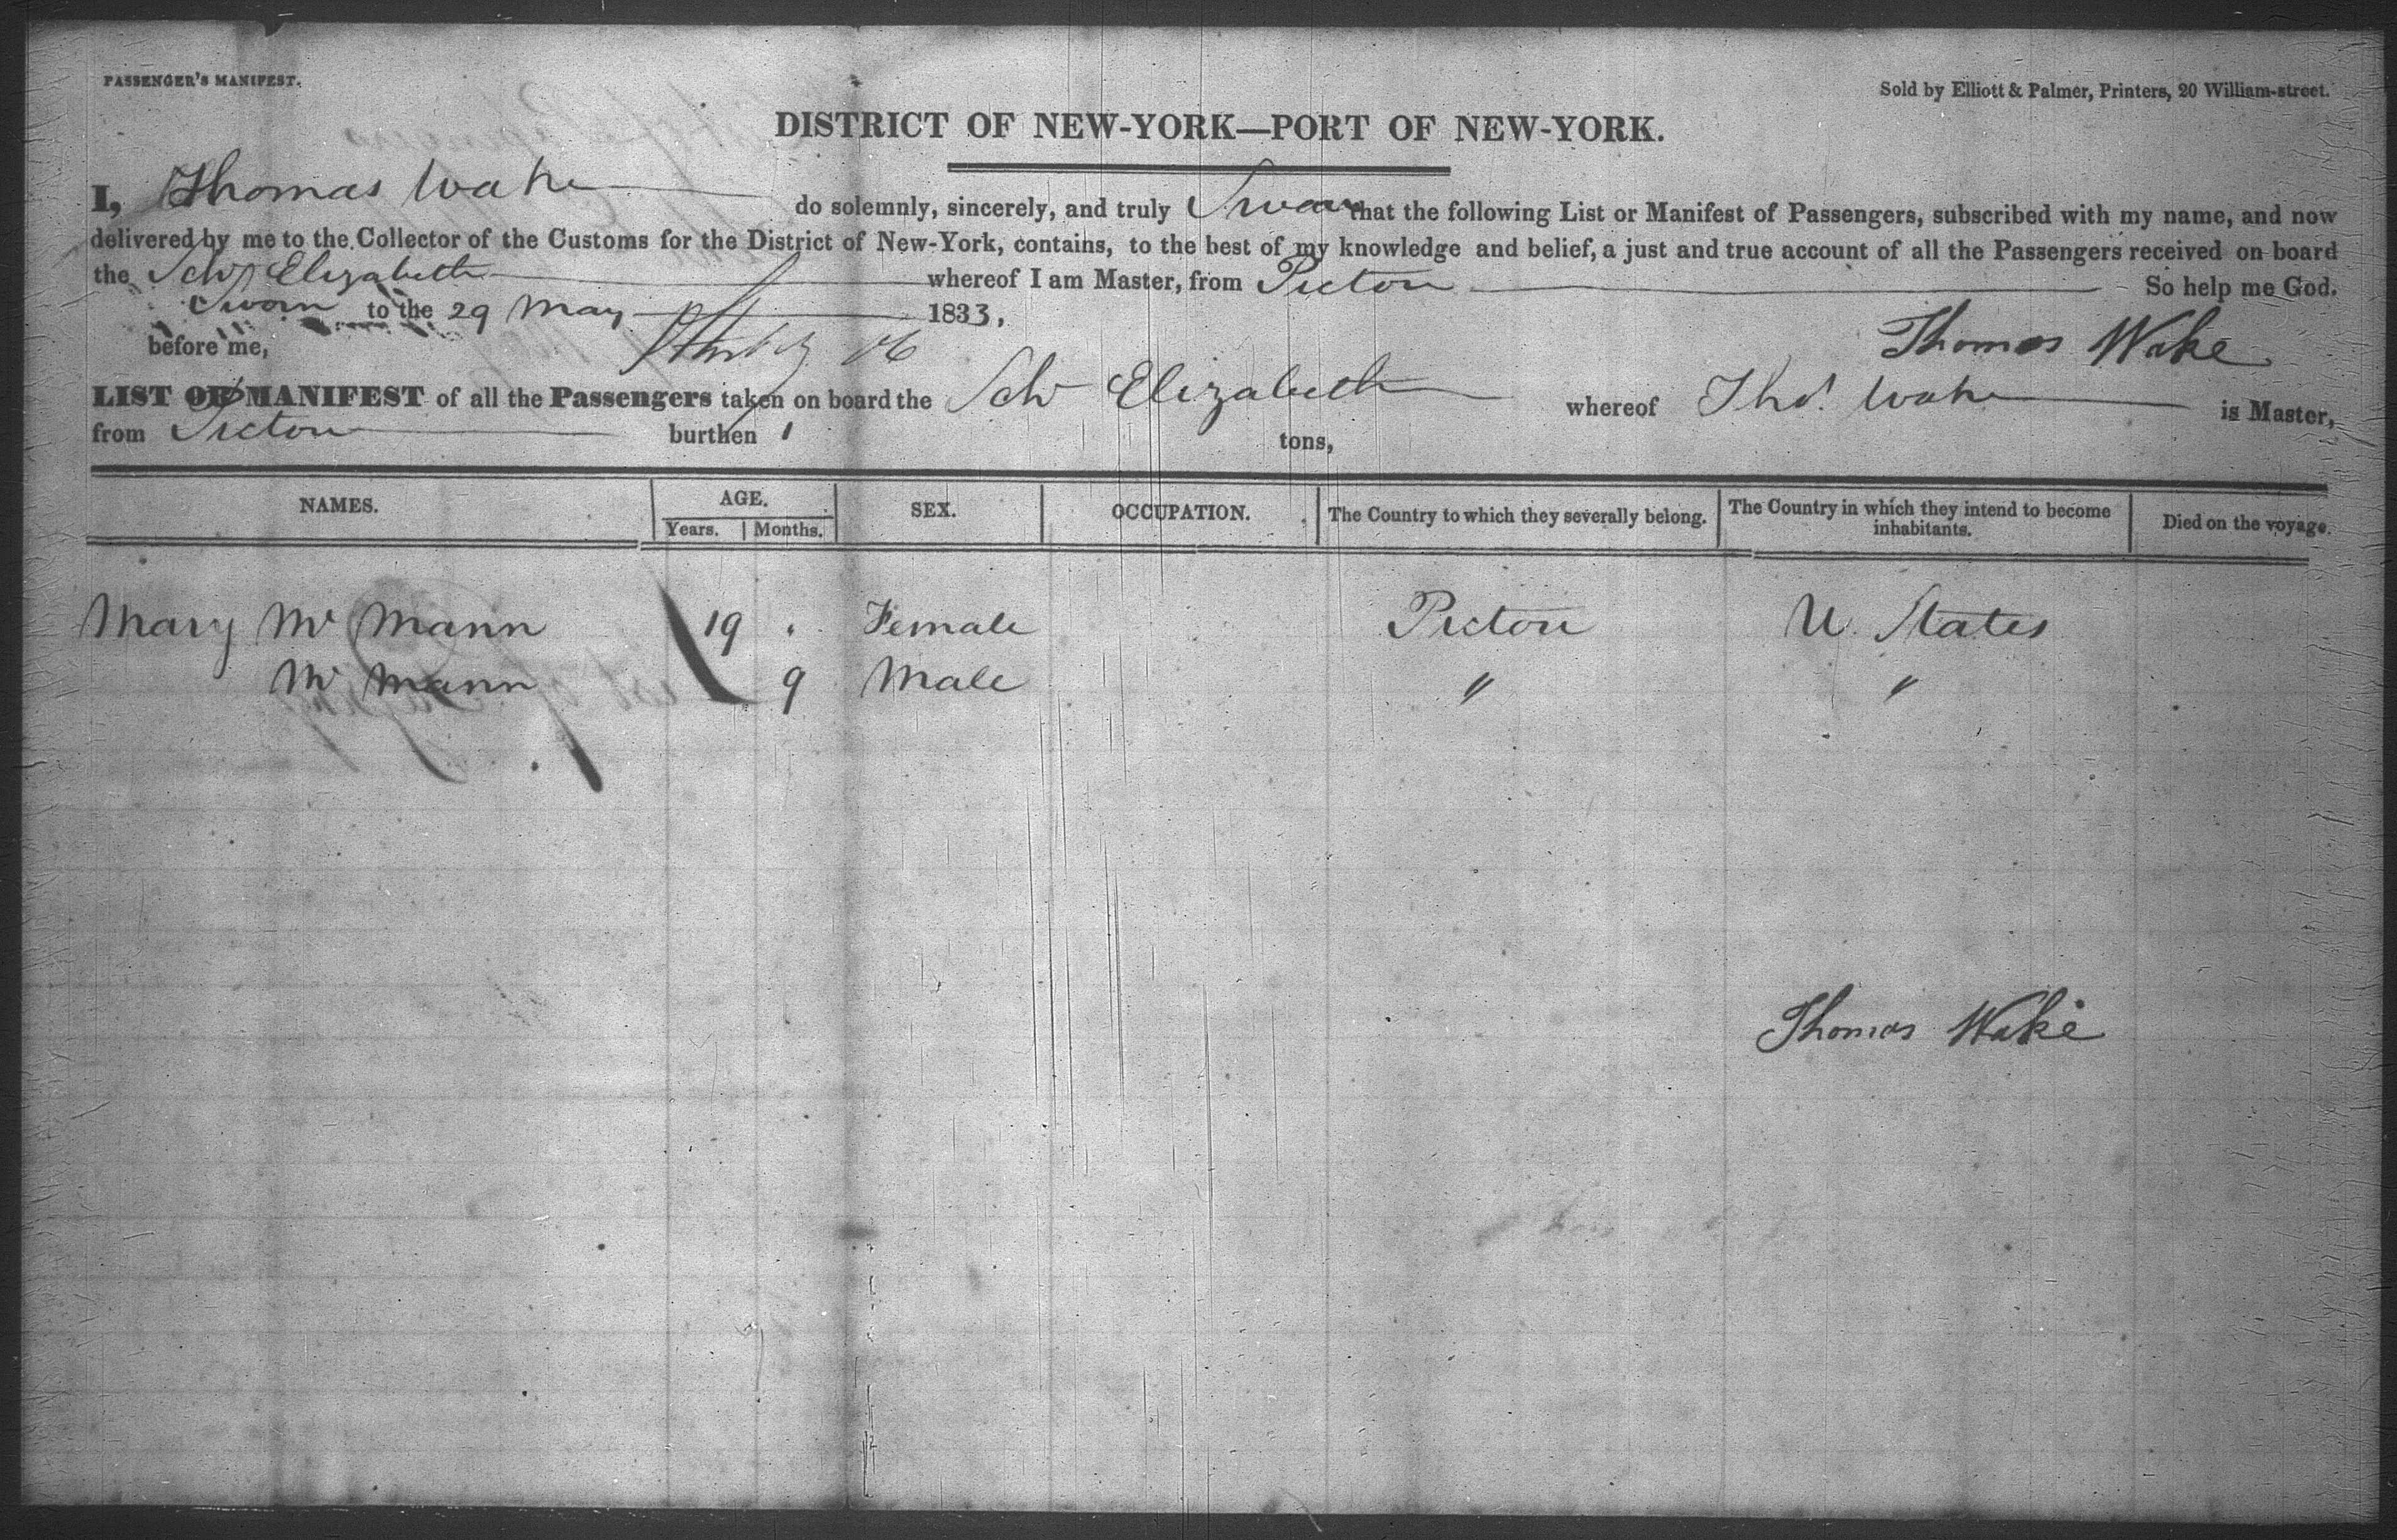 PASSENGER'S MANIFEST.
Sold by Elliott & Palmer, Printers, 20 William-street.
DISTRICT OF NEW-YORK—PORT OF NEW-YORK.
I, Thomas Wake do solemnly, sincerely, and truly Swear that the following List or Manifest of Passengers, subscribed with my name, and now
delivered by me to the Collector of the Customs for the District of New-York, contains, to the best of my knowledge and belief, a just and true account of all the Passengers received on board
the Schr Elizabeth whereof I am Master, from Picton So help me God.
Sworn to the 29 May 1833,
before me, Thomas Wake
LIST OR MANIFEST of all the Passengers taken on board the Schr Elizabeth whereof Thos. Wake is Master,
from Picton burthen tons,
NAMES. AGE. SEX. OCCUPATION. The Country to which they severally belong. The Country in which they intend to become inhabitants. Died on the voyage.
Years. Months.
Mary Mc Mann 19 Female Picton U. States
Mc Mann 9 Male " "
Thomas Wake